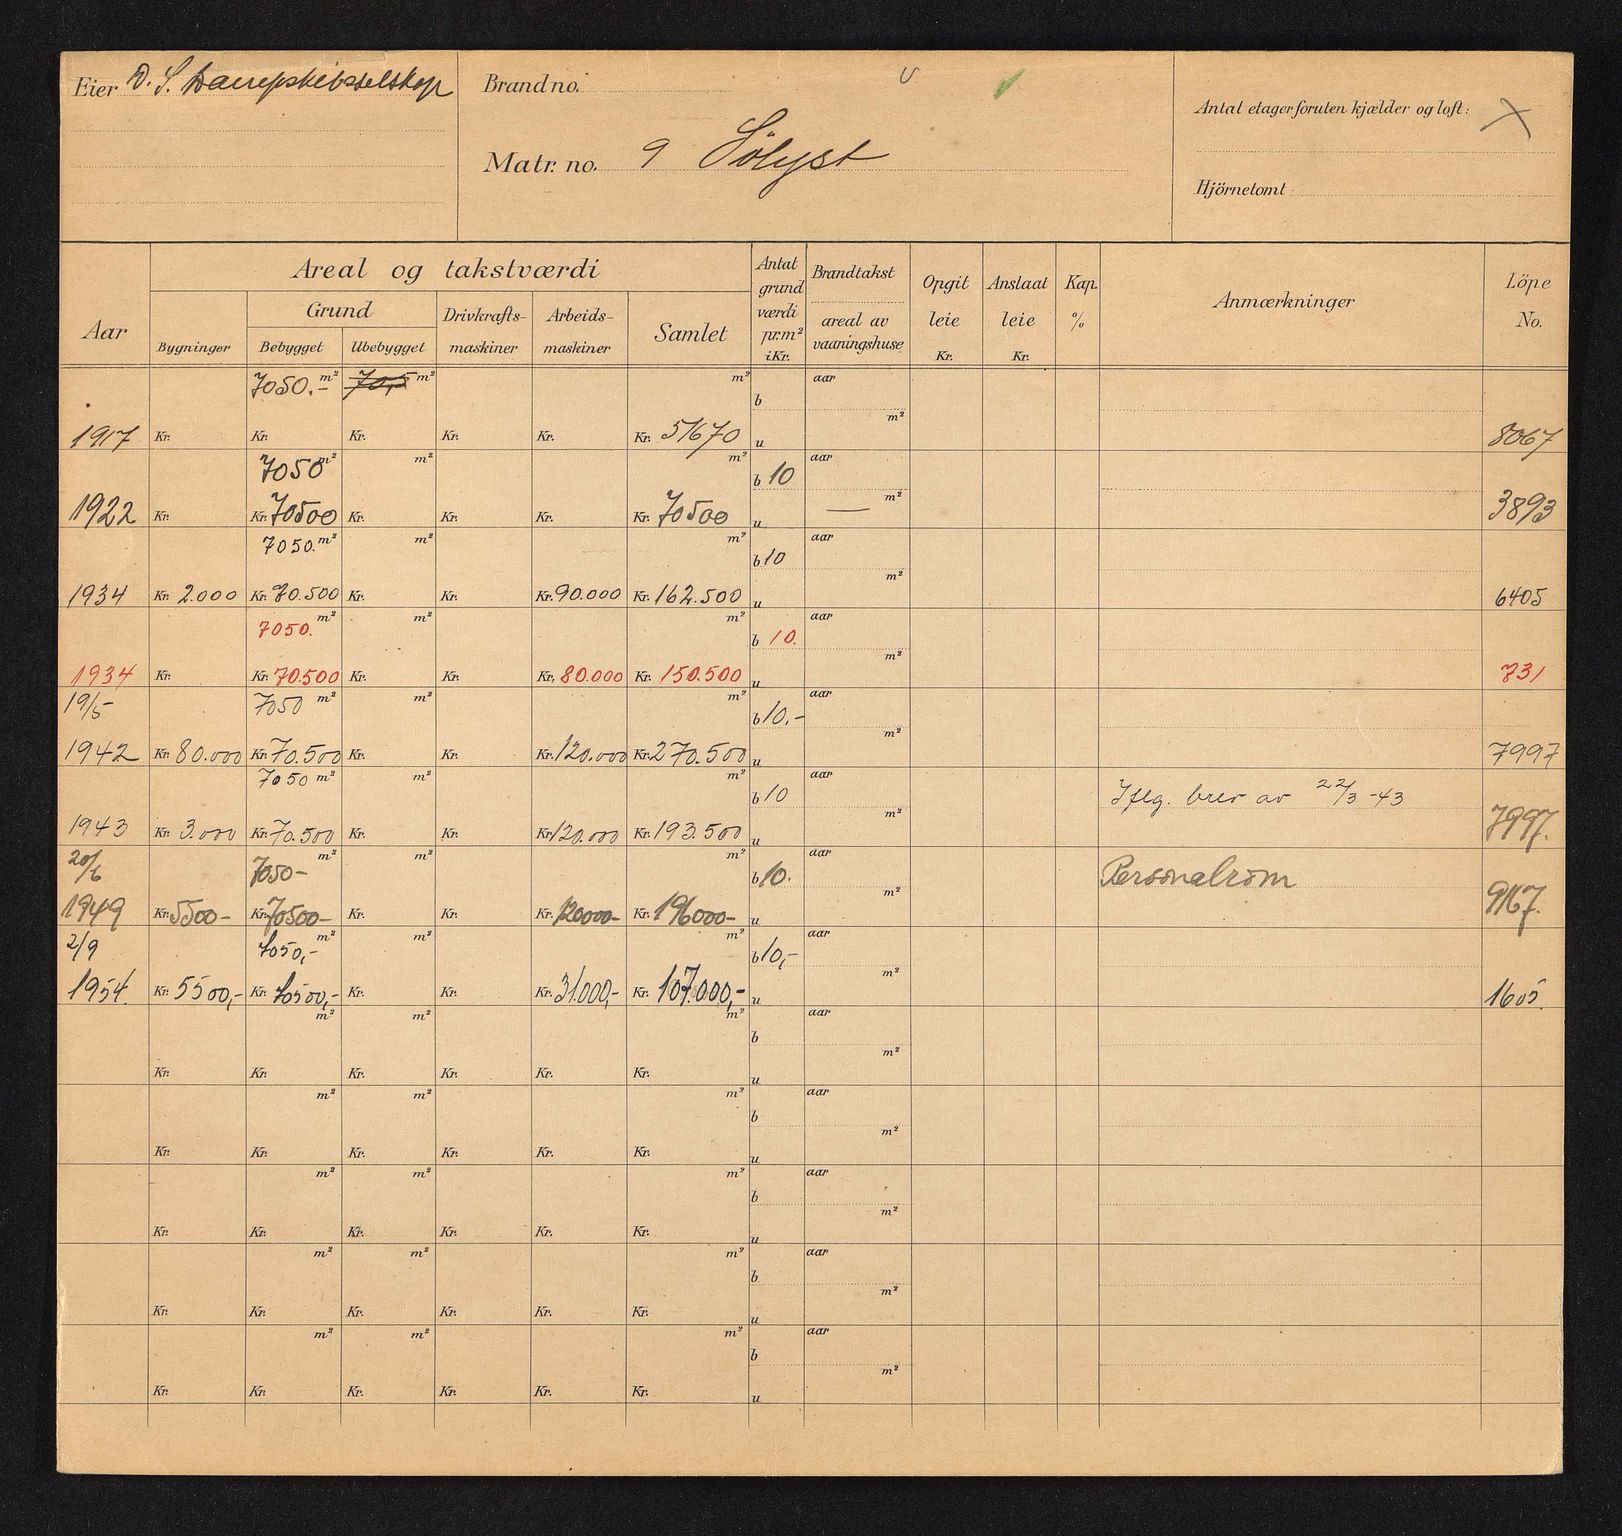 Eier D. S. Dampskibsselskap
Brand no.
Matr. no. 9 Sölyst
Antal etager foruten kjælder og loft: X
Hjörnetomt
Aar
Areal og takstværdi
Grund
Bygninger
Bebygget
Ubebygget
Drivkrafts-maskiner
Arbeids-maskiner
Samlet
Antat grund værdi pr. m² i Kr.
Brandtakst
areal av vaaningshuse
Opgit leie Kr.
Anslaat leie Kr.
Kap. %
Anmærkninger
Löpe No.
7050.- m² 70,5 m² m² b aar
m²
1917 Kr. Kr. Kr. Kr. Kr. Kr. 51670 u 8067
7050 m² m² m² b 10 aar
— m²
1922 Kr. Kr. 70500 Kr. Kr. Kr. Kr. 70500 u 3893
7050. m² m² m² b 10 aar
m²
1934 Kr. 2.000 Kr. 70.500 Kr. Kr. Kr. 90.000 Kr. 162.500 u 6405
7050. m² m² m² b 10. aar
m²
1934 Kr. Kr. 70.500 Kr. Kr. Kr. 80.000 Kr. 150.500 u 731
19/5 7050 m² m² m² b 10.- aar
m²
1942 Kr. 80.000 Kr. 70.500 Kr. Kr. Kr. 120.000 Kr. 270.500 u 7997
7050 m² m² m² b 10 aar
Iflg. brev av 22/3-43
m²
1943 Kr. 3.000 Kr. 70.500 Kr. Kr. Kr. 120.000 Kr. 193.500 u 7997.
20/6 7050- m² m² m² b 10. aar
Personalrom
m²
1949 Kr. 5500- Kr. 70500- Kr. Kr. Kr. 120000- Kr. 196000- u 9167.
2/9 7050,- m² m² m² b 10,- aar
m²
1954. Kr. 5500,- Kr. 70500,- Kr. Kr. Kr. 31.000,- Kr. 107.000,- u 1605.
m² m² m² b aar
m²
Kr. Kr. Kr. Kr. Kr. Kr. u
m² m² m² b aar
m²
Kr. Kr. Kr. Kr. Kr. Kr. u
m² m² m² b aar
m²
Kr. Kr. Kr. Kr. Kr. Kr. u
m² m² m² b aar
m²
Kr. Kr. Kr. Kr. Kr. Kr. u
m² m² m² b aar
m²
Kr. Kr. Kr. Kr. Kr. Kr. u